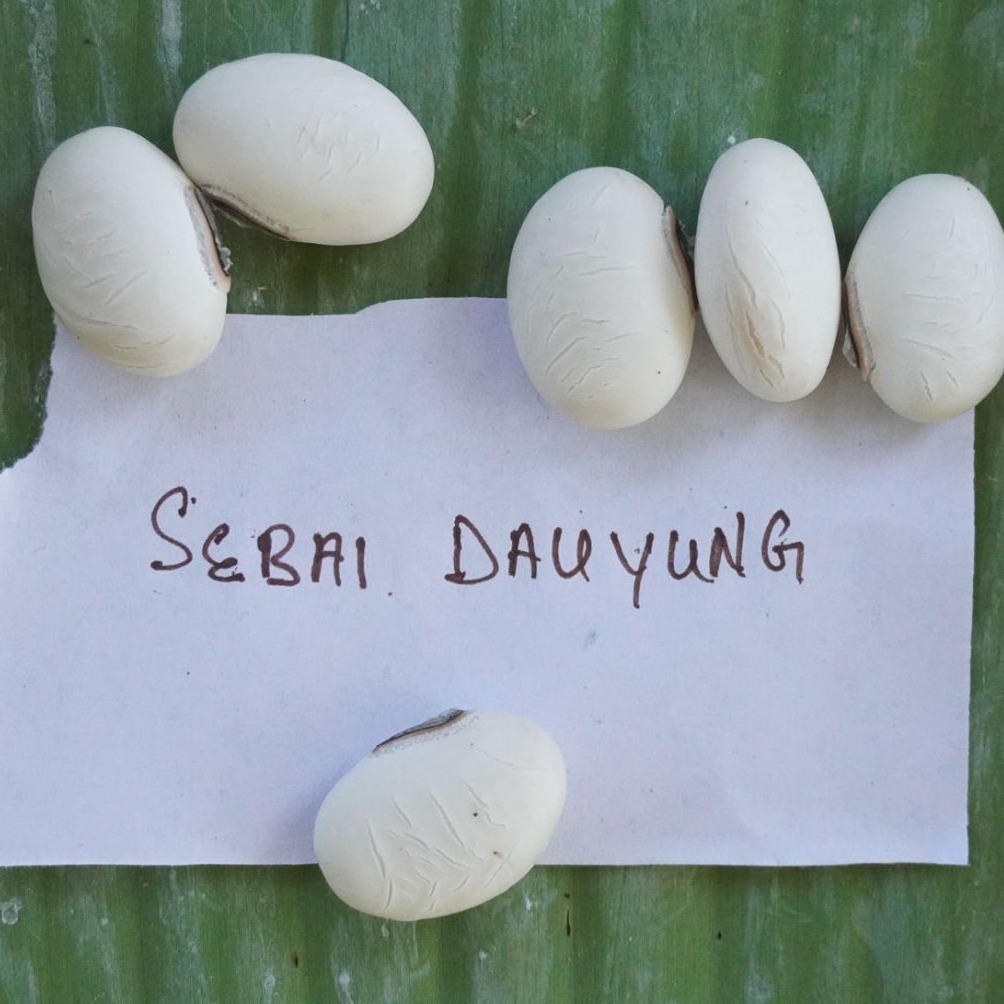 SEBAI DAUYUNG